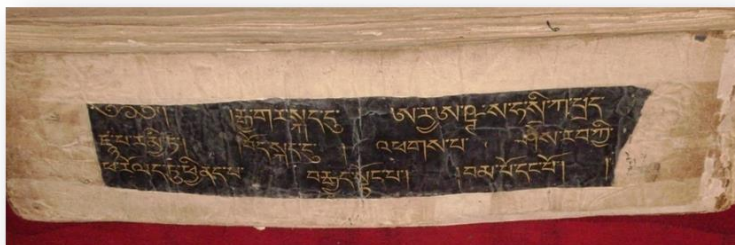 ༄༅༅། །རྒྱ་གར་སྐད་དུ ཨརྱ་ཨཥྚ་ས་ཧ་སྲི་ཀ་པྲཛ
པཱ་ར་མི་ཏ། བོད་སྐད་དུ། འཕགས་པ་ ཤེས་རབ་ཀྱི་
ཕ་རོལ་ཏུ་ཕྱིན་པ་ བརྒྱད་སྟོང་པ། །བམ་པོ་དང་པོ། །